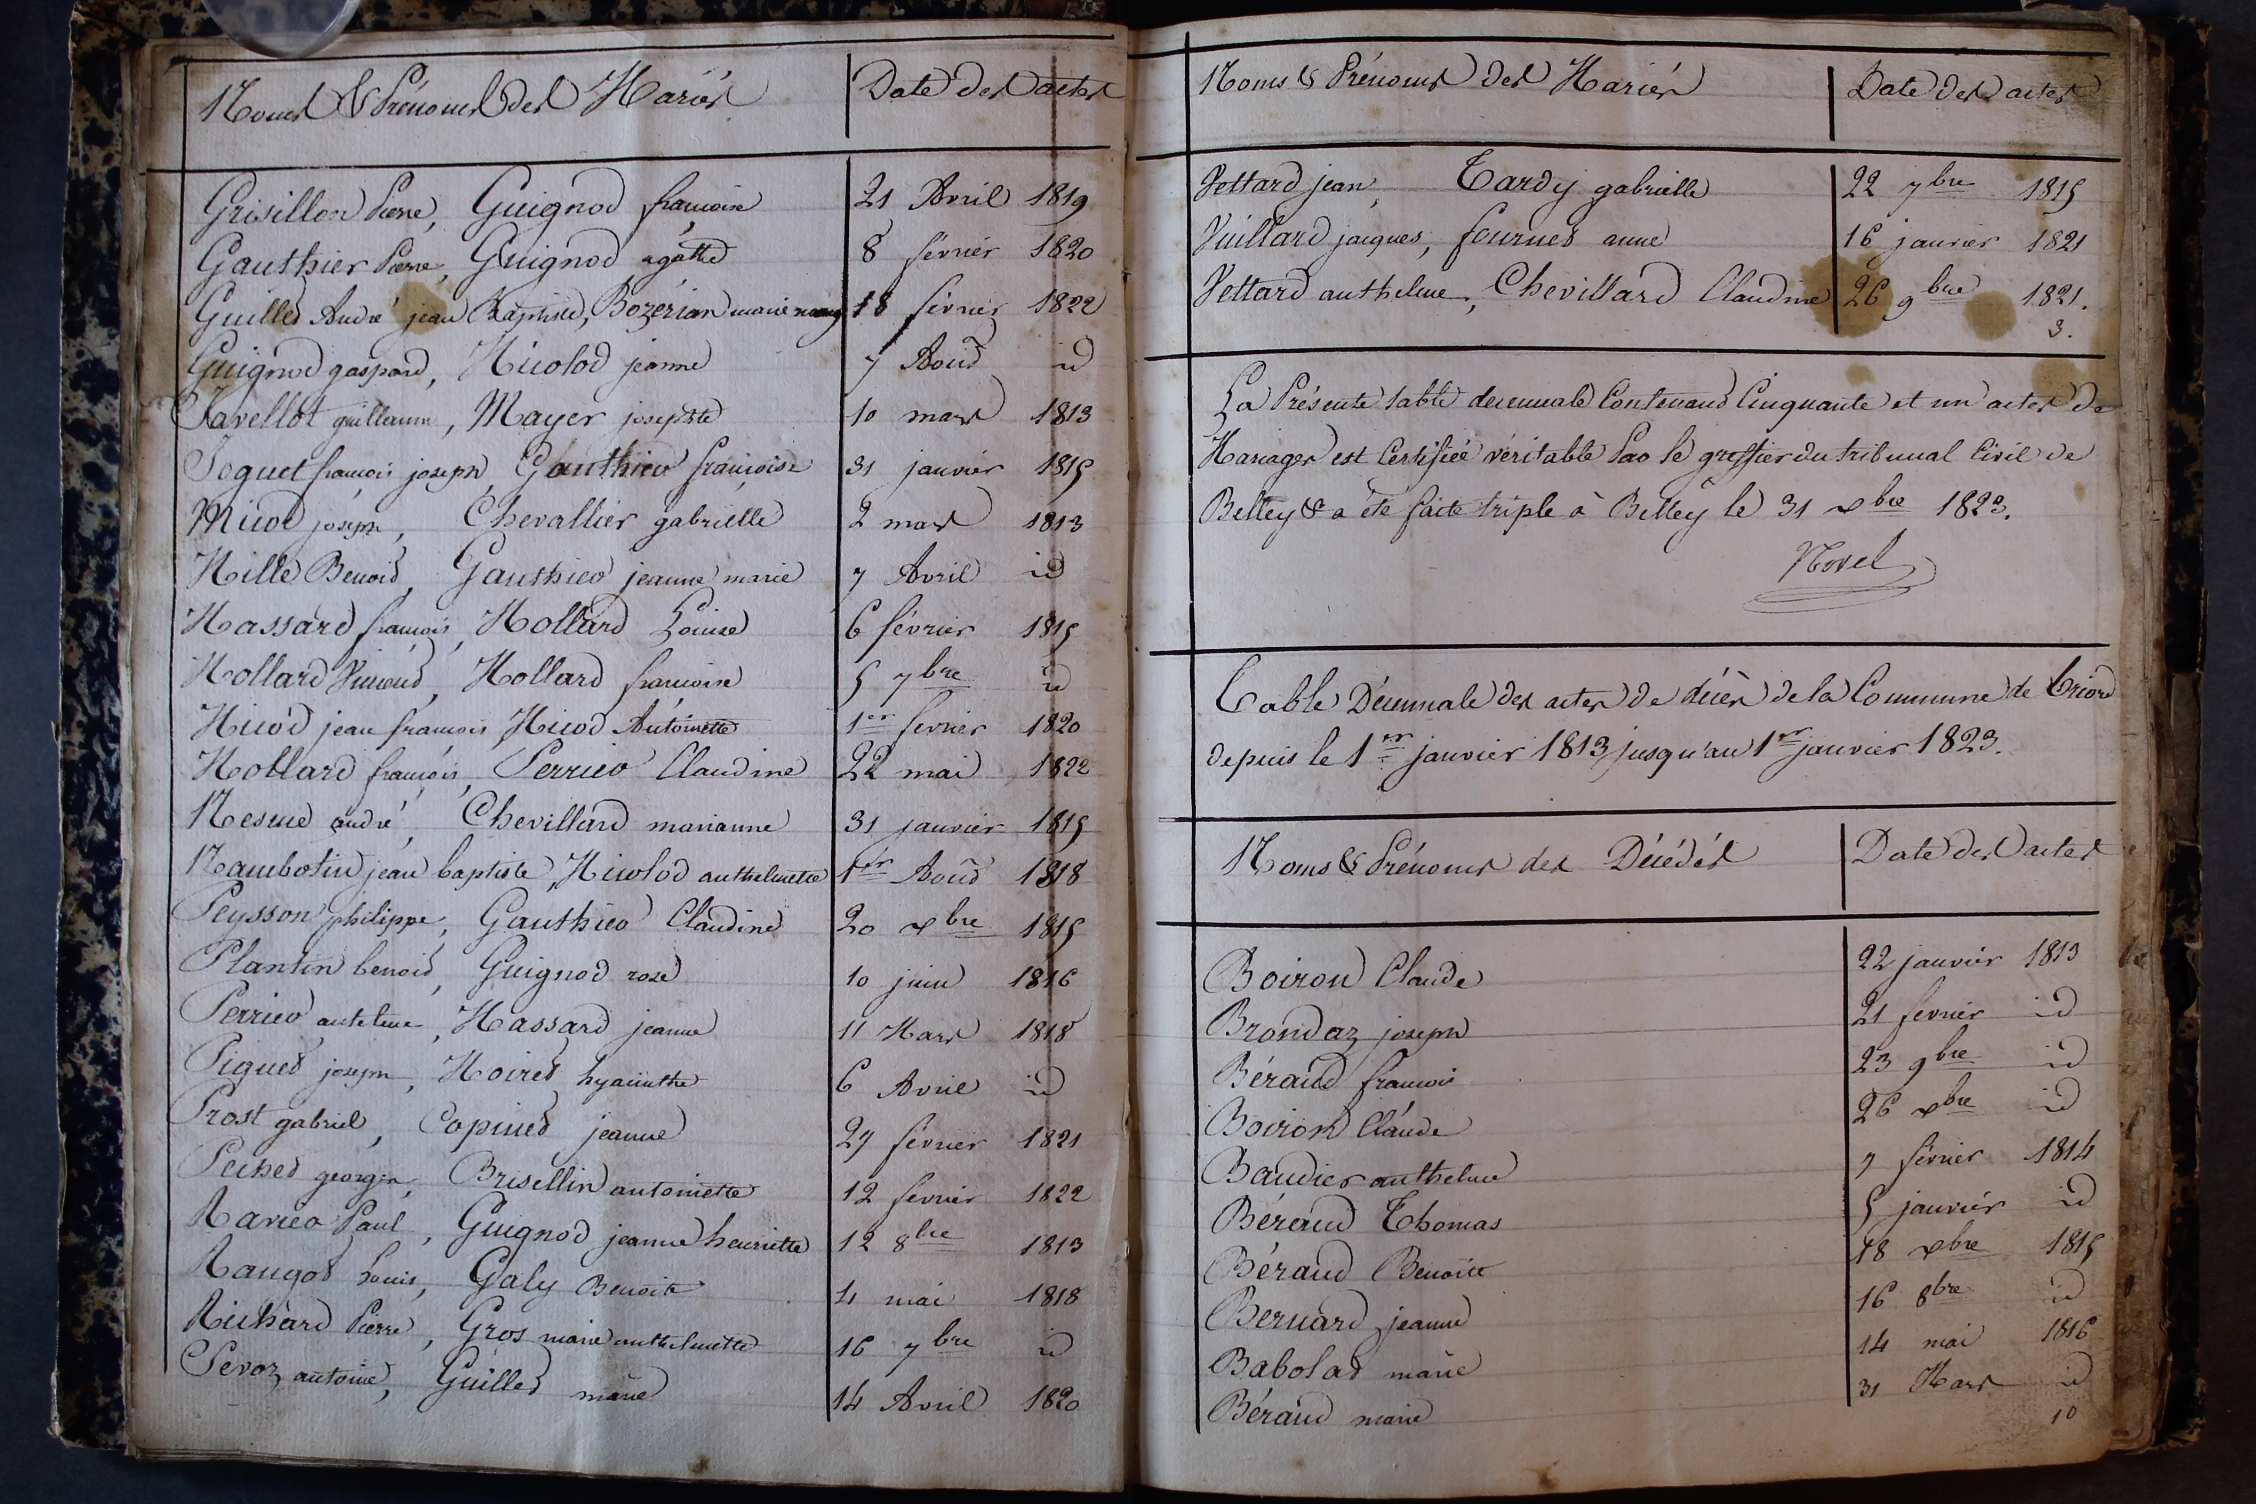 Noms & Prénoms des Mariés Date des actes
Grisillon Pierre, Guignod françoise 21 Avril 1819
Gauthier Pierre, Guignod agathe 8 février 1820
Guillet André jean Baptiste, Bozérian marie 18 février 1822
Guignod gaspard, Micolod jeanne 7 Aout id
Javellot guillaume, Mayer josephte 10 mars 1813
Joguet françois joseph, Gauthier françoise 31 janvier 1815
Micod joseph, Chevallier gabrielle 2 mars 1813
Mille Benoit, Gauthier jeanne marie 7 Avril id
Massard françois, Mollard Louise 6 février 1815
Mollard Vincent, Mollard françoise 5 7bre id
Micod jean françois, Micod Antoinette 1er fevrier 1820
Mollard françois, Perrier Claudine 22 mai 1822
Nesme andré, Chevillard marianne 31 janvier 1815
Nambotin jean baptiste, Micolod anthelmette 1er Aout 1818
Peysson philippe, Gauthier Claudine 20 xbre 1815
Plantin benoit, Guignod rose 10 juin 1816
Perrier antelme, Massard jeanne 11 Mars 1818
Piguet joseph, Moiret hyacinthe 6 Avril id
Prost gabriel, Copinet jeanne 27 février 1821
Pechet georges, Brisellin antoinette 12 fevrier 1822
Ravier Paul, Guignod jeanne henriette 12 8bre 1813
Rangot Louis, Galy Benoite 4 mai 1818
Richard Pierre, Gros marie anthelmette 16 7bre id
Sevoz antoine, Guillet marie 14 Avril 1820
Noms & Prénoms des Mariés Date des actes
Vettard jean, Tardy gabrielle 22 7bre 1815
Vuillard jacques, fournet anne 16 janvier 1821
Vettard anthelme, Chevillard Claudine 26 9bre 1821.
3.
La Présente table decennale Contenant Cinquante et un actes de
Mariages est Certifiée véritable Par le greffier du tribunal Civil de
Belley & a été faite triple à Belley le 31 xbre 1823.
Novel
Table Décennale des actes de décès de la Commune de Briord
depuis le 1er janvier 1813, jusqu'au 1er janvier 1823.
Noms & Prénoms des Décédés Date des actes
Boiron Claude 22 janvier 1813
Brondaz joseph 21 fevrier id
Béraud francois 23 9bre id
Boiron Claude 26 xbre id
Baudier anthelme 7 février 1814
Béraud Thomas 5 janvier id
Béraud Benoite 18 xbre 1815
Bernard jeanne 16 8bre id
Babolat marie 14 mai 1816
Béraud marie 31 Mars id
10